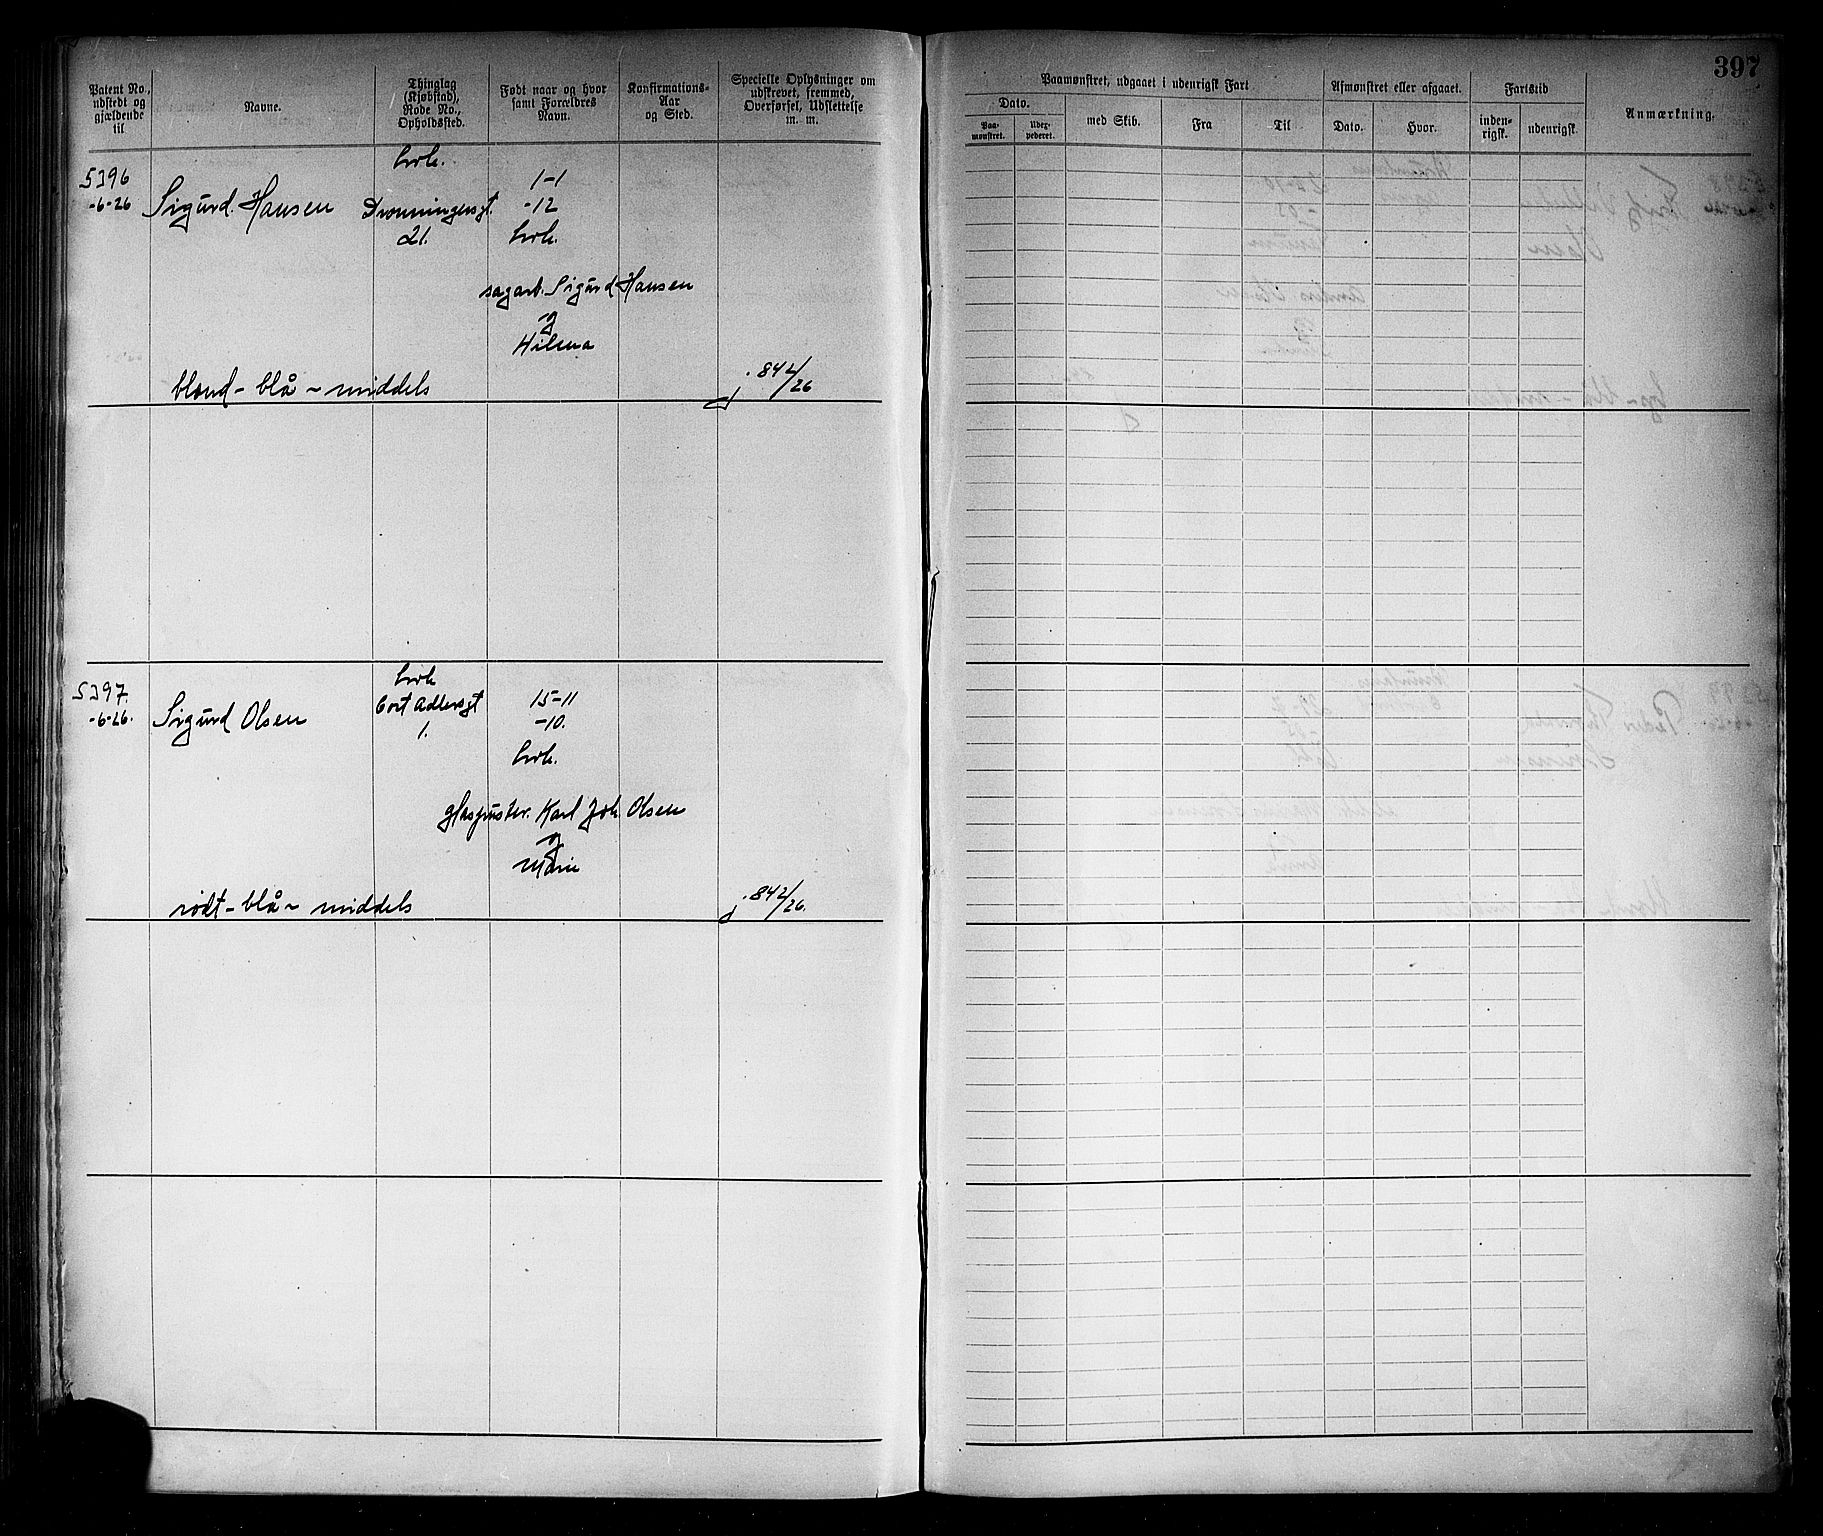 Patent No.,
udstedt og
gjældende
til
Navne.
Thinglag
(Kjøbstad),
Rode No.,
Opholdssted.
Født naar og hvor
samt Forældres
Navn.
Konfirmations-
Aar
og Sted.
Specielle Oplysninger om
udskrevet, fremmed,
Overførsel, Udslettelse
m. m.
5396
-6-26
Sigurd. Hansen
Lrvk.
Dronningensgt.
21.
1-1
-12
Lrvk.
sagarb. Sigurd Hansen
og
Hilena
blond - blå - middels
j. 842/26
5397.
-6-26.
Sigurd Olsen
Lrvk
Cort Adlersgt
1.
15-11
-10.
Lrvk.
glaspuster. Karl Joh. Olsen
og
Marie
rødt - blå - middels
j. 842/26.
397
Paamønstret, udgaaet i udenrigsk Fart
Afmønstret eller afgaaet.
Fartstid
Anmærkning.
Dato.
med Skib.
Fra
Til
Dato.
Hvor.
inden-
rigsk.
udenrigsk.
Paa-
mønstret.
Uder-
pederet.